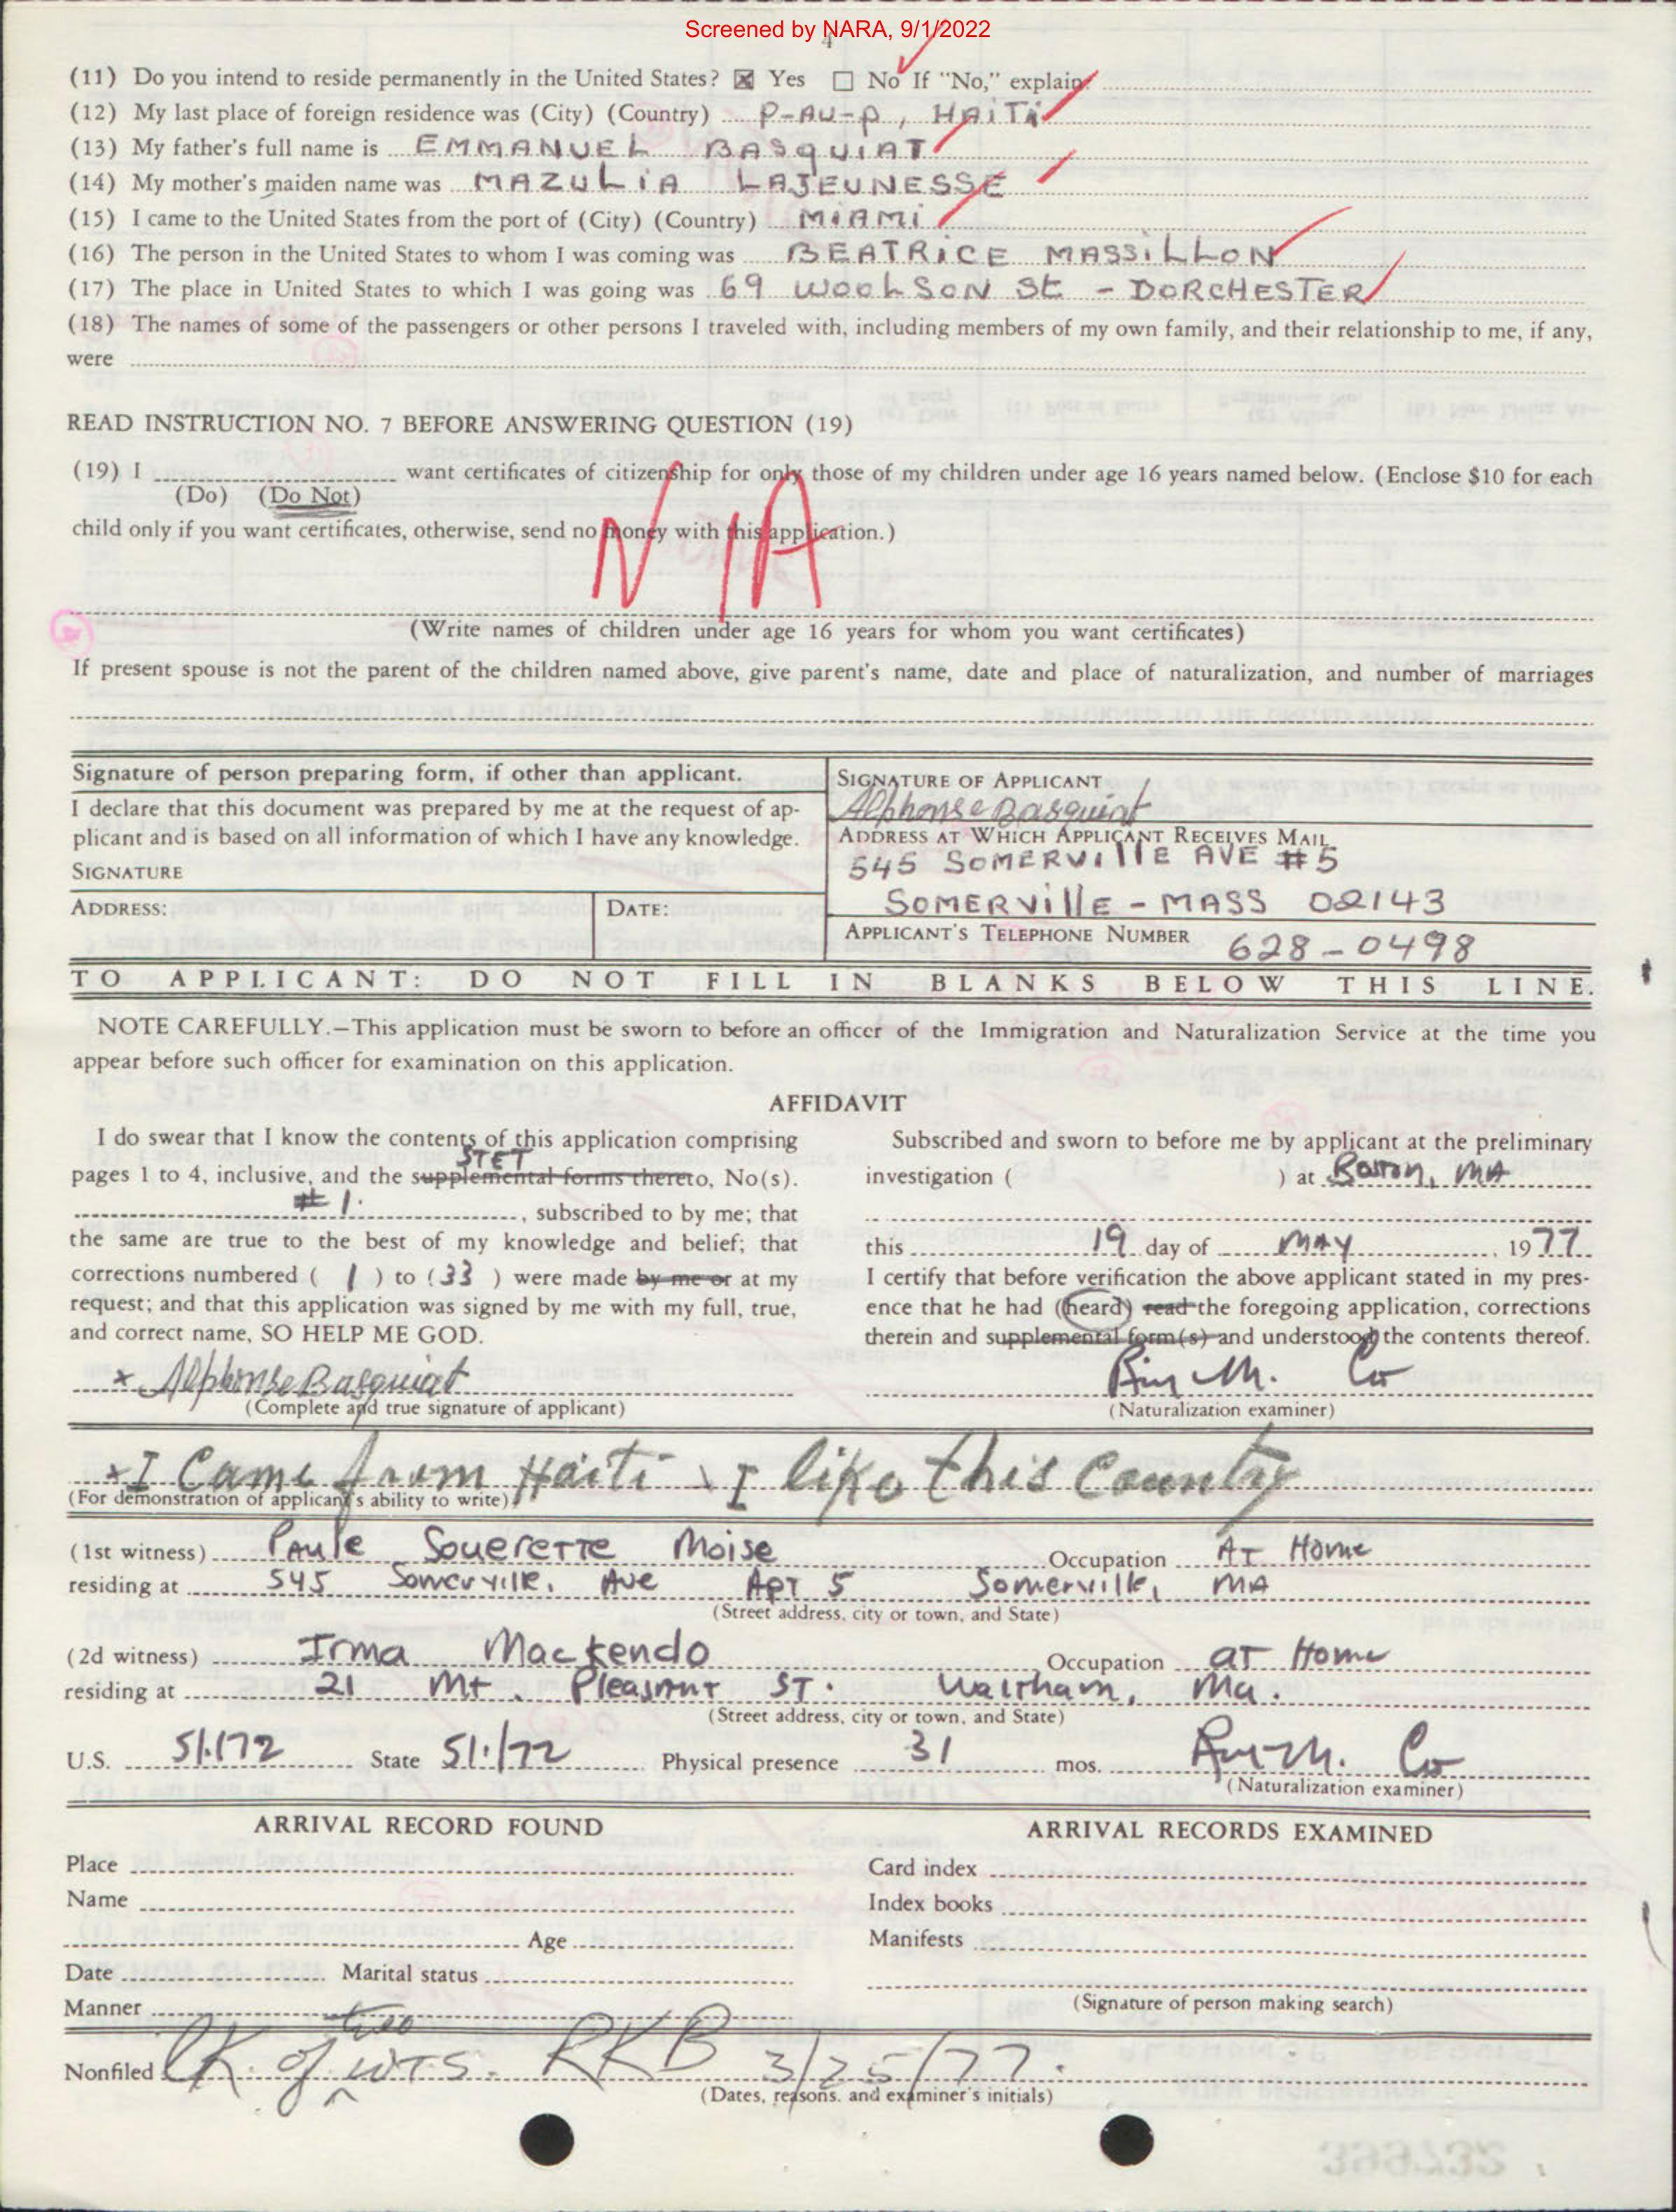 Screened by NARA, 9/1/2022
4
(11) Do you intend to reside permanently in the United States? ☒ Yes ☐ No If "No," explain:
(12) My last place of foreign residence was (City) (Country) P-AU-P, HAITI
(13) My father's full name is EMMANUEL BASQUIAT
(14) My mother's maiden name was MAZULIA LAJEUNESSE
(15) I came to the United States from the port of (City) (Country) MIAMI
(16) The person in the United States to whom I was coming was BEATRICE MASSILLON
(17) The place in United States to which I was going was 69 WOOLSON St - DORCHESTER
(18) The names of some of the passengers or other persons I traveled with, including members of my own family, and their relationship to me, if any,
were
READ INSTRUCTION NO. 7 BEFORE ANSWERING QUESTION (19)
(19) I want certificates of citizenship for only those of my children under age 16 years named below. (Enclose $10 for each
(Do) (Do Not)
child only if you want certificates, otherwise, send no money with this application.)
N/A
(Write names of children under age 16 years for whom you want certificates)
If present spouse is not the parent of the children named above, give parent's name, date and place of naturalization, and number of marriages
Signature of person preparing form, if other than applicant.
I declare that this document was prepared by me at the request of ap-
plicant and is based on all information of which I have any knowledge.
SIGNATURE
ADDRESS: DATE:
SIGNATURE OF APPLICANT
Alphonse Basquiat
ADDRESS AT WHICH APPLICANT RECEIVES MAIL
545 SOMERVIllE AVE #5
SOMERVillE - MASS 02143
APPLICANT'S TELEPHONE NUMBER 628-0498
TO APPLICANT: DO NOT FILL IN BLANKS BELOW THIS LINE.
NOTE CAREFULLY.—This application must be sworn to before an officer of the Immigration and Naturalization Service at the time you
appear before such officer for examination on this application.
AFFIDAVIT
I do swear that I know the contents of this application comprising
STET
pages 1 to 4, inclusive, and the supplemental forms thereto, No(s).
# 1. , subscribed to by me; that
the same are true to the best of my knowledge and belief; that
corrections numbered ( 1 ) to ( 33 ) were made by me or at my
request; and that this application was signed by me with my full, true,
and correct name, SO HELP ME GOD.
x Alphonse Basquiat
(Complete and true signature of applicant)
Subscribed and sworn to before me by applicant at the preliminary
investigation ( ) at Boston, MA
this 19 day of MAY , 1977
I certify that before verification the above applicant stated in my pres-
ence that he had (heard) read the foregoing application, corrections
therein and supplemental form(s) and understood the contents thereof.
(Naturalization examiner)
x I Came from Haiti I like this Country
(For demonstration of applicant's ability to write)
(1st witness) Paule Souerette Moise Occupation At Home
residing at 545 Somerville, Ave Apt 5 Somerville, MA
(Street address, city or town, and State)
(2d witness) Irma Mackendo Occupation at Home
residing at 21 Mt. Pleasant ST. Waltham, Ma.
(Street address, city or town, and State)
U.S. 5/1/72 State 5/1/72 Physical presence 31 mos.
(Naturalization examiner)
ARRIVAL RECORD FOUND
Place
Name
Age
Date Marital status
Manner
ARRIVAL RECORDS EXAMINED
Card index
Index books
Manifests
(Signature of person making search)
two
Nonfiled of WTS. RKB 3/25/77.
(Dates, reasons, and examiner's initials)